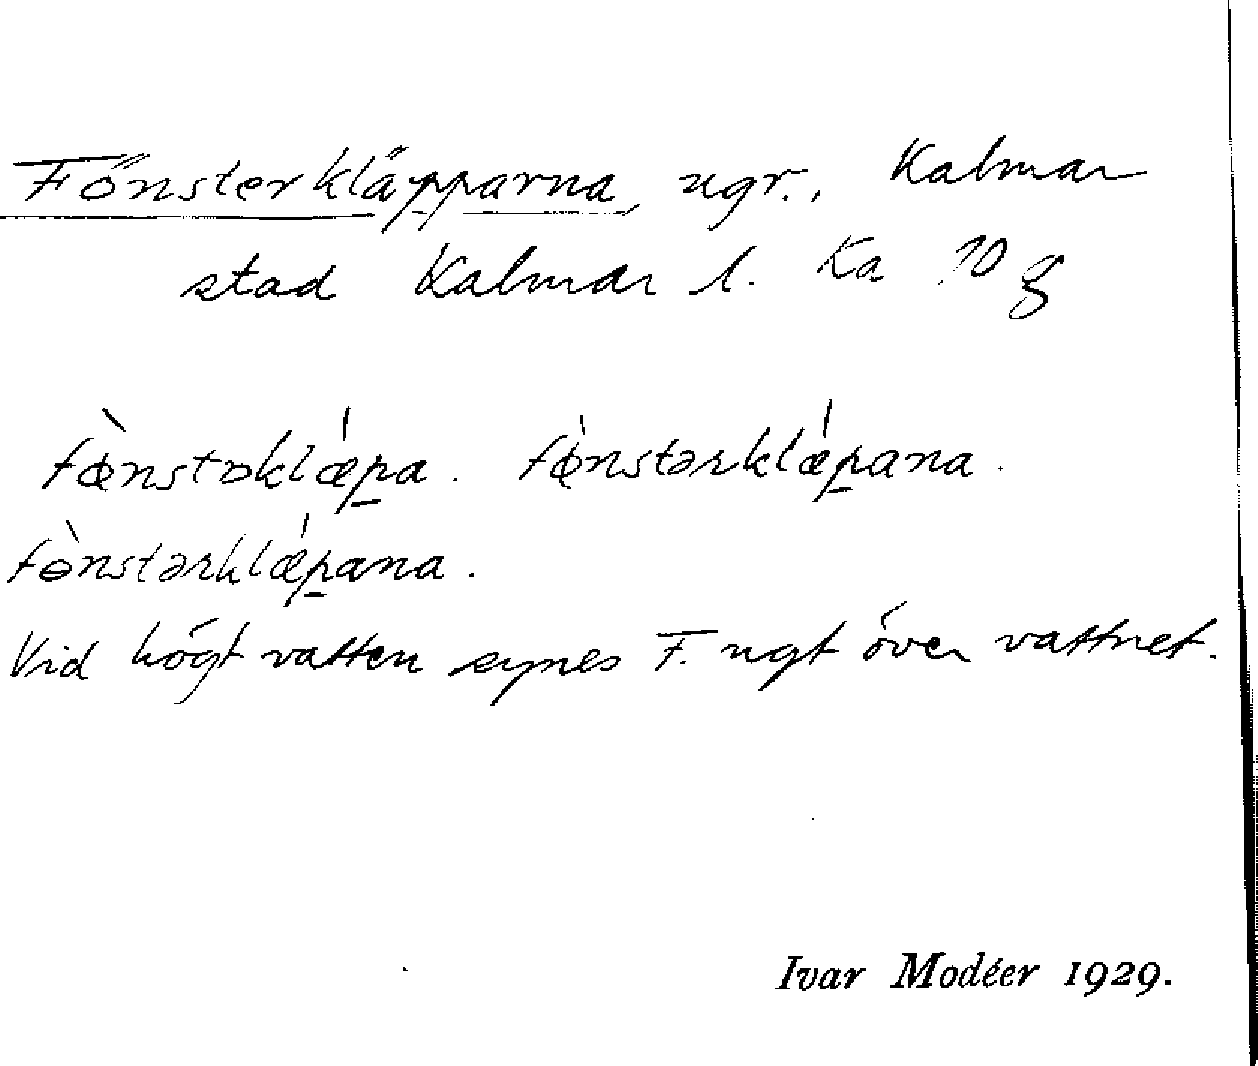 Fönsterkläpparna, ugr., Kalmar
stad Kalmar l. Ka 10 g
fœ̀nstɒklǽp̲a. fø̀nstərklǽp̲ana.
fɵ̀nstərklǽp̲ana.
Vid högt vatten synes F. ngt över vattnet.
Ivar Modéer 1929.